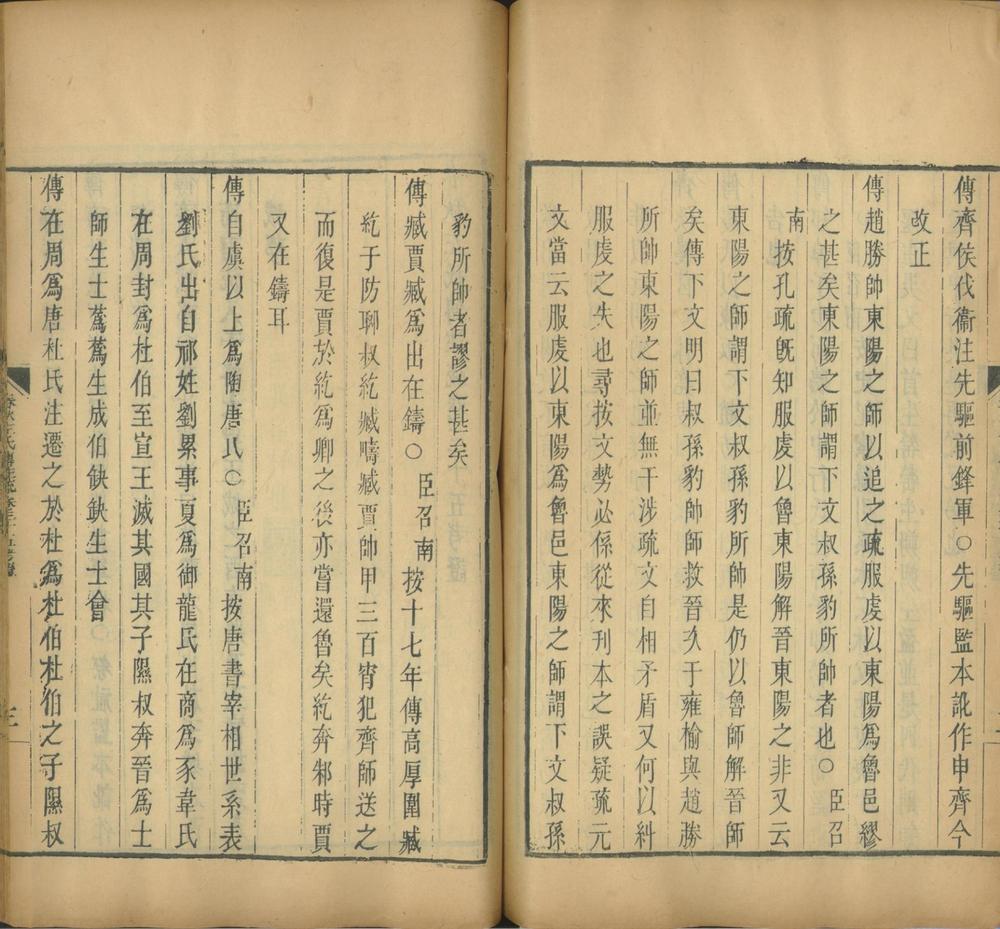 傳齊侯伐衞注先驅前鋒軍〇先驅監本訛作申齊今
改正
傳趙勝帥東陽之師以追之疏服虔以東陽爲魯邑繆
之甚矣東陽之師謂下文叔孫豹所帥者也〇臣召
南按孔疏旣知服虔以魯東陽解晉東陽之非又云
東陽之師謂下文叔孫豹所帥是仍以魯師解晉師
矣傳下文明曰叔孫豹帥師救晉次于雍榆與趙勝
所帥東陽之師並無干涉疏文自相矛盾又何以糾
服虔之失也尋按文勢必係從來刊本之誤疑疏元
文當云服虔以東陽爲魯邑東陽之師謂下文叔孫
豹所帥者謬之甚矣
傳臧賈臧爲出在鑄〇臣召南按十七年傳高厚圍臧
紇于防聊叔紇臧疇臧賈帥甲三百宵犯齊師送之
而復是賈於紇爲卿之後亦嘗還魯矣紇奔邾時賈
又在鑄耳
傳自虞以上爲陶唐氏〇臣召南按唐書宰相世系表
劉氏出自祁姓劉累事夏爲御龍氏在商爲豕韋氏
在周封爲杜伯至宣王滅其國其子隰叔奔晉爲士
師生士蒍蒍生成伯缺缺生士會
傳在周爲唐杜氏注遷之於杜爲杜伯杜伯之子隰叔
春秋左氏傳注疏卷三十五考證
三